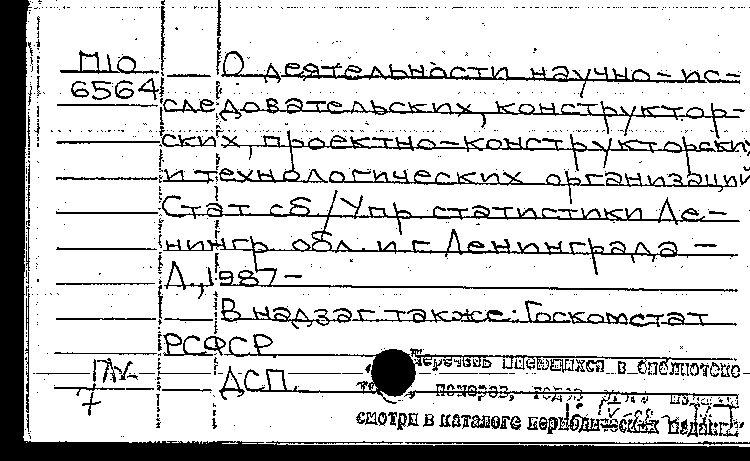 П10
6564
О деятельности научно-ис-
следовательских, конструктор-
ских, проектно-конструкторских
и технологических организаций
Стат сб./Упр статистики Ле-
нингр обл. и г Ленинграда -
Л., 1987-
В надзаг также: Госкомстат
РСФСР.
ДСП.
7
Перечень имеющихся в библиотеке
номеров, годов этого издания
смотри в каталоге периодических изданий